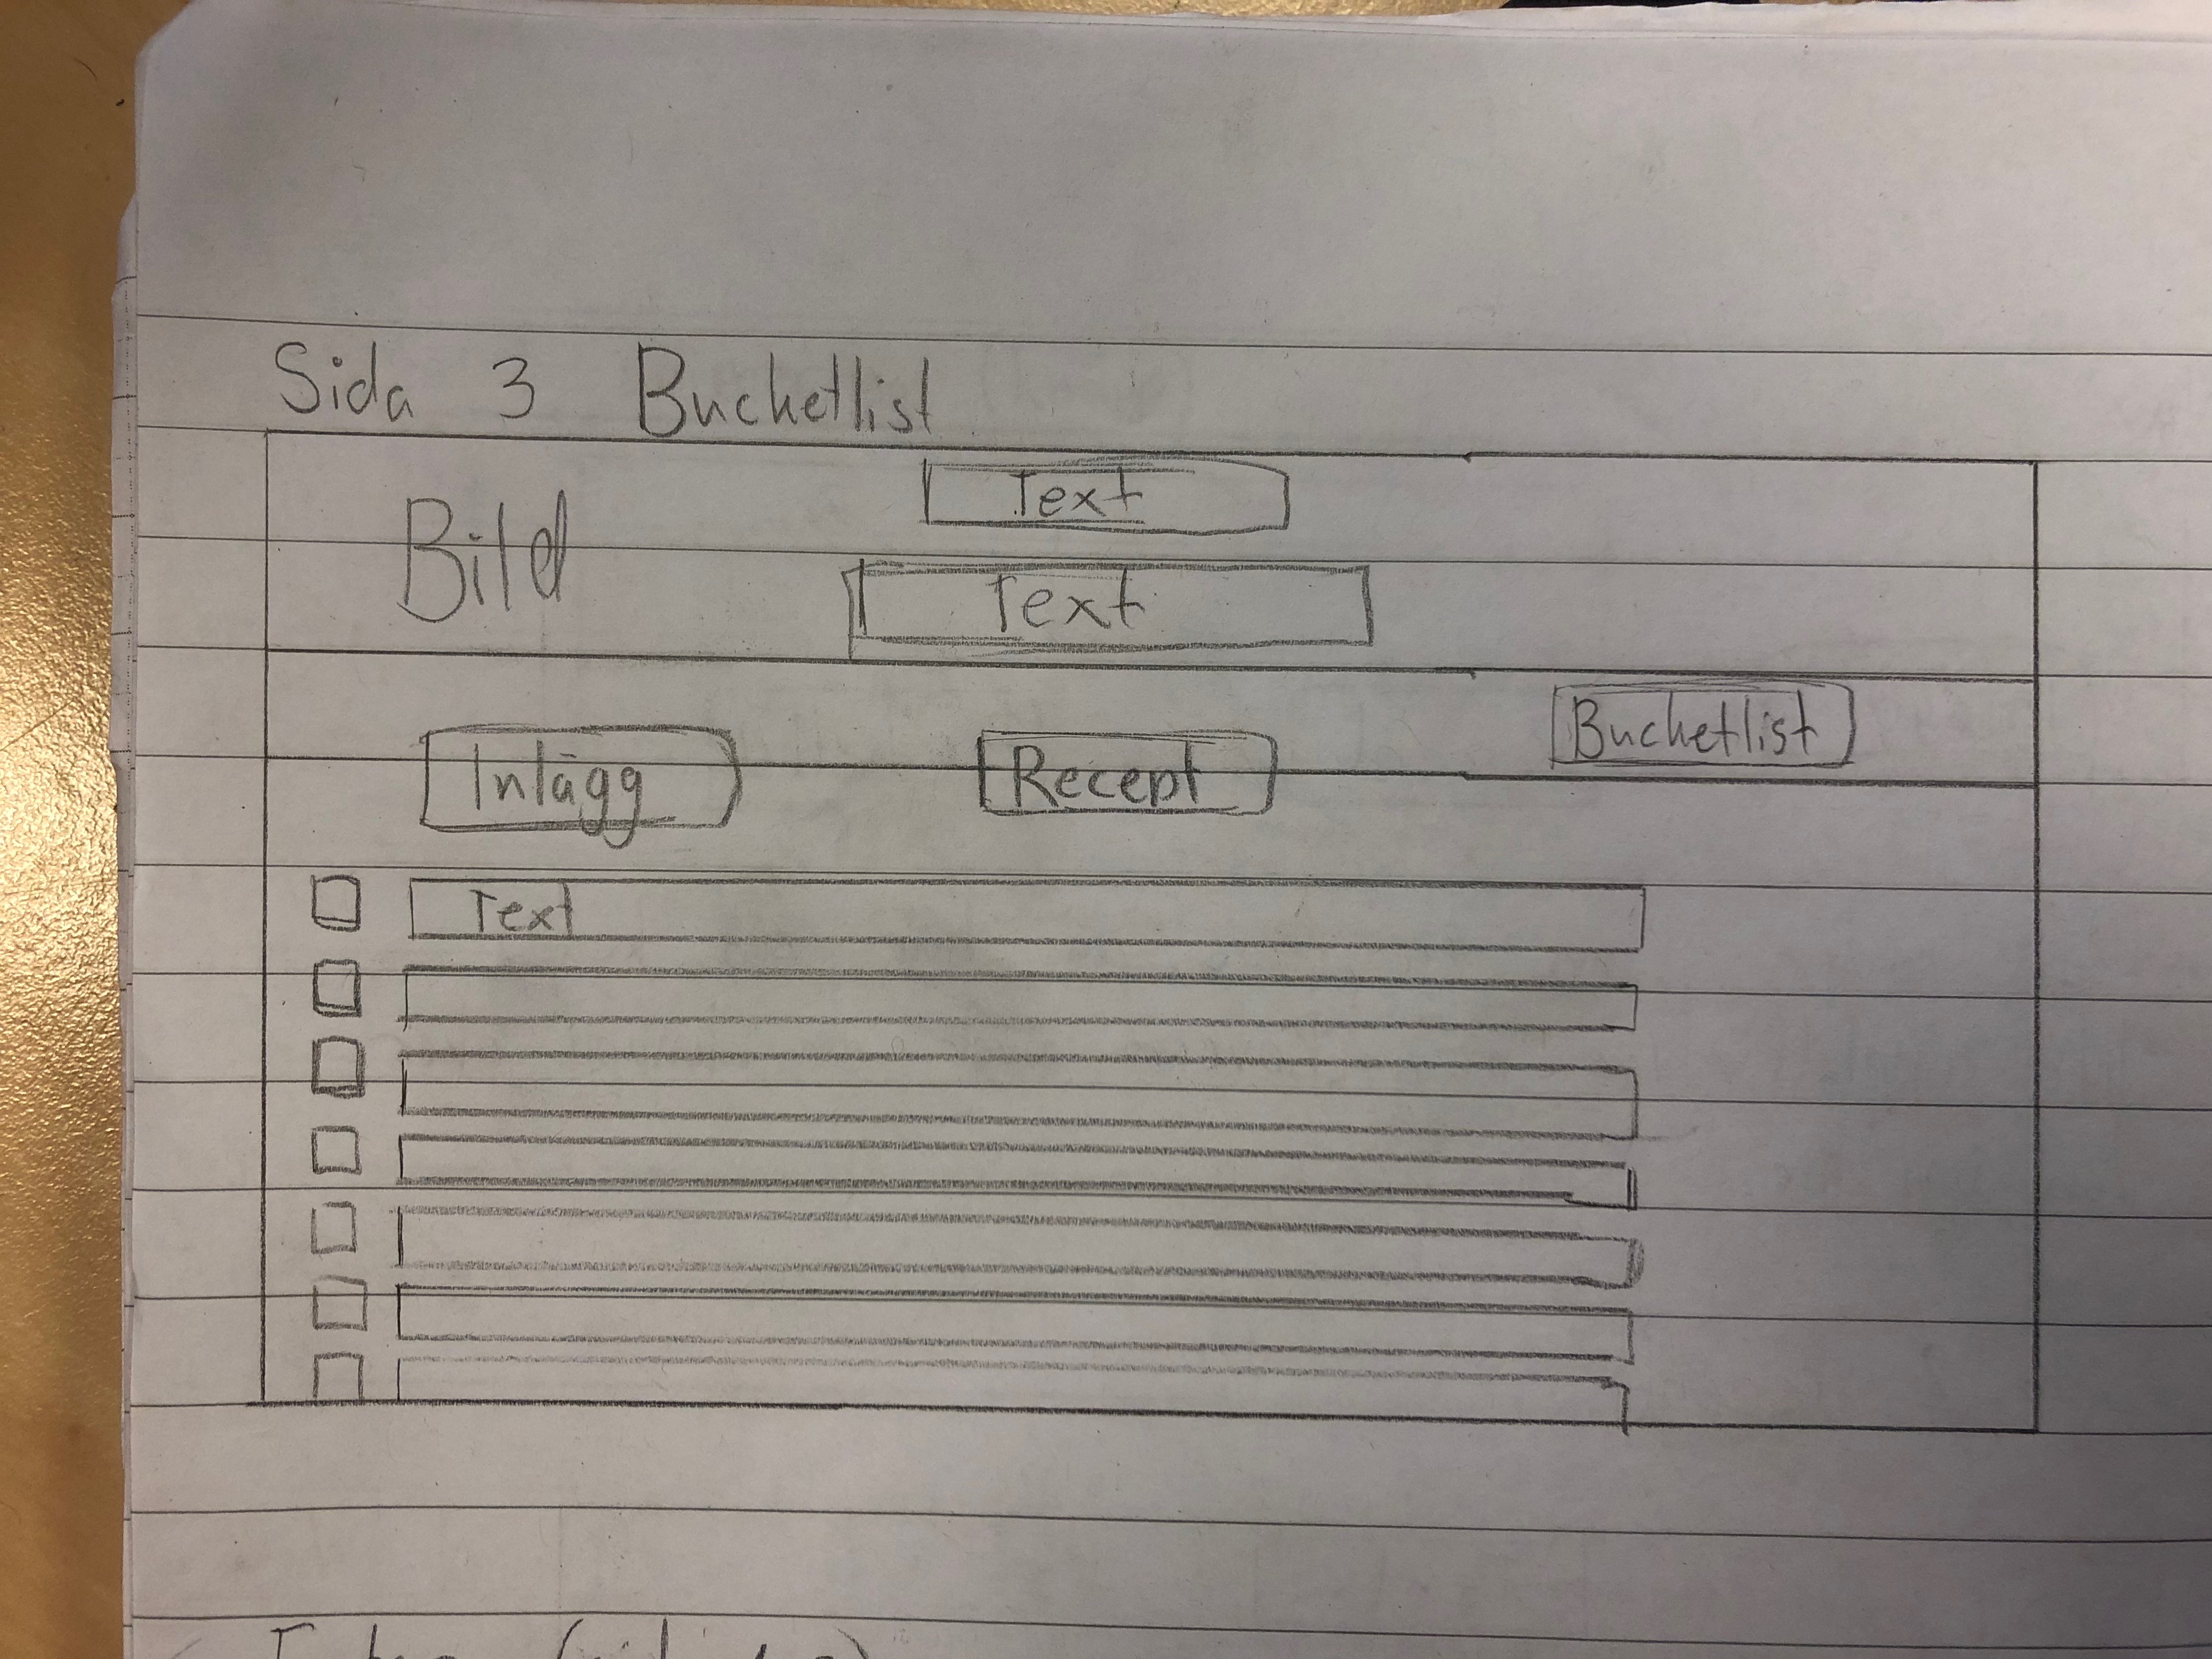 Sida 3 Bucketlist
Text
Bild
Text
Inlägg Recept Bucketlist
Text